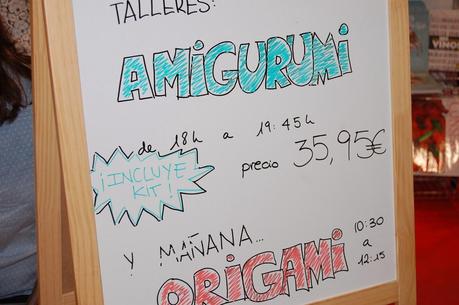 TALLERES:
AMIGURUMI
de 18h a 19:45h
¡INCLUYE
KIT!
precio 35,95€
Y MAÑANA...
ORIGAMI
10:30
a
12:15